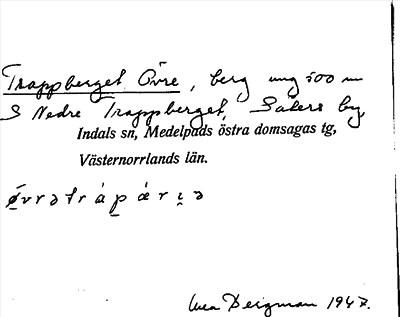 Trappberget Övre, berg ung 500 m
S Nedre Trappberget, Säters by,
Indals sn, Medelpads östra domsagas tg,
Västernorrlands län.
Bergman 1947.